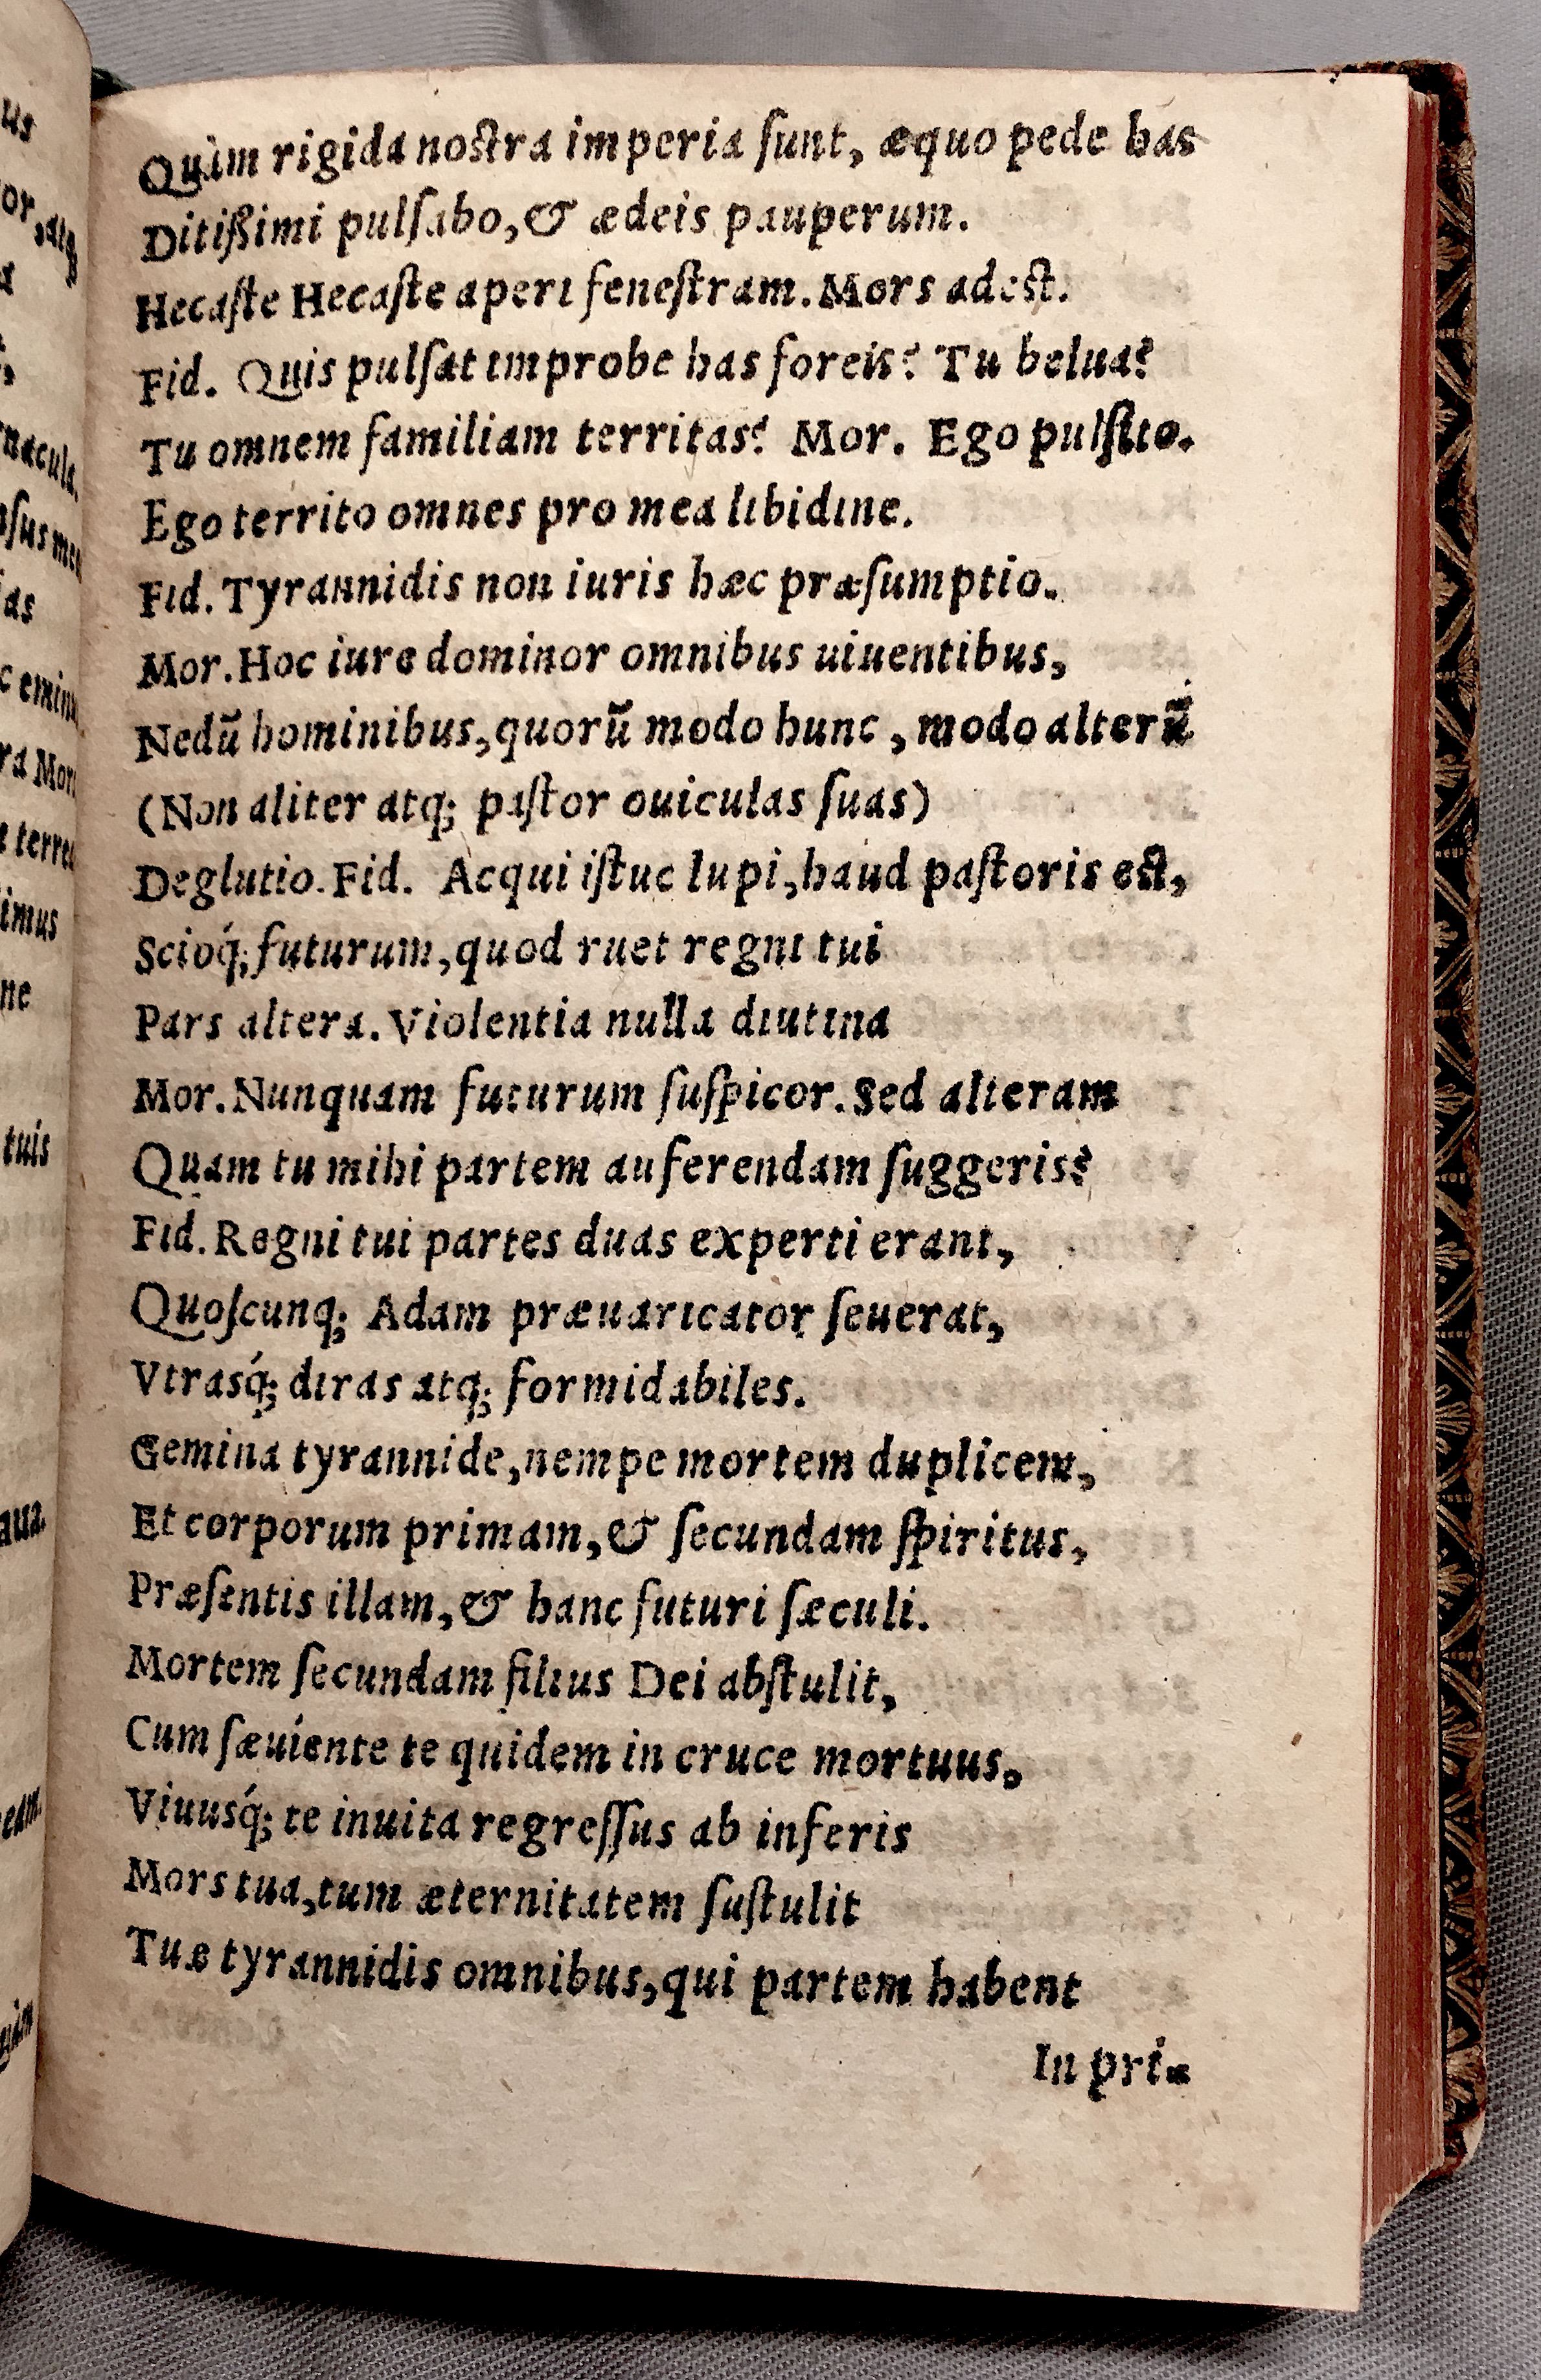 Quàm rigida nostra imperia ſunt, æquo pede has
Ditißimi pulſabo, & ædeis pauperum.
Hecaſte Hecaſte aperi feneſtram. Mors adest.
Fid. Quis pulſat improbe has foreis? Tu belua?
Tu omnem familiam territas? Mor. Ego pulſito.
Ego territo omnes pro mea libidine.
Fid. Tyrannidis non iuris hæc præſumptio.
Mor. Hoc iure dominor omnibus uiuentibus,
Nedū hominibus, quorū modo hunc, modo alterū
(Non aliter atq; paſtor ouiculas ſuas)
Deglutio. Fid. Acqui iſtuc lupi, haud paſtoris est,
Scioq́; futurum, quod ruet regni tui
Pars altera. Violentia nulla diutina
Mor. Nunquam futurum ſuſpicor. Sed alteram
Quam tu mihi partem auferendam ſuggeris?
Fid. Regni tui partes duas experti erant,
Quoſcunq; Adam præuaricator ſeuerat,
Vtrasq́; diras atq; formidabiles.
Gemina tyrannide, nempe mortem duplicem,
Et corporum primam, & ſecundam ſpiritus,
Præſentis illam, & hanc futuri ſæculi.
Mortem ſecundam filius Dei abſtulit,
Cum ſæuiente te quidem in cruce mortuus,
Viuusq́; te inuita regreſſus ab inferis
Mors tua, tum æternitatem ſuſtulit
Tuæ tyrannidis omnibus, qui partem habent
In pri-
us
tuis
ne
imus
as